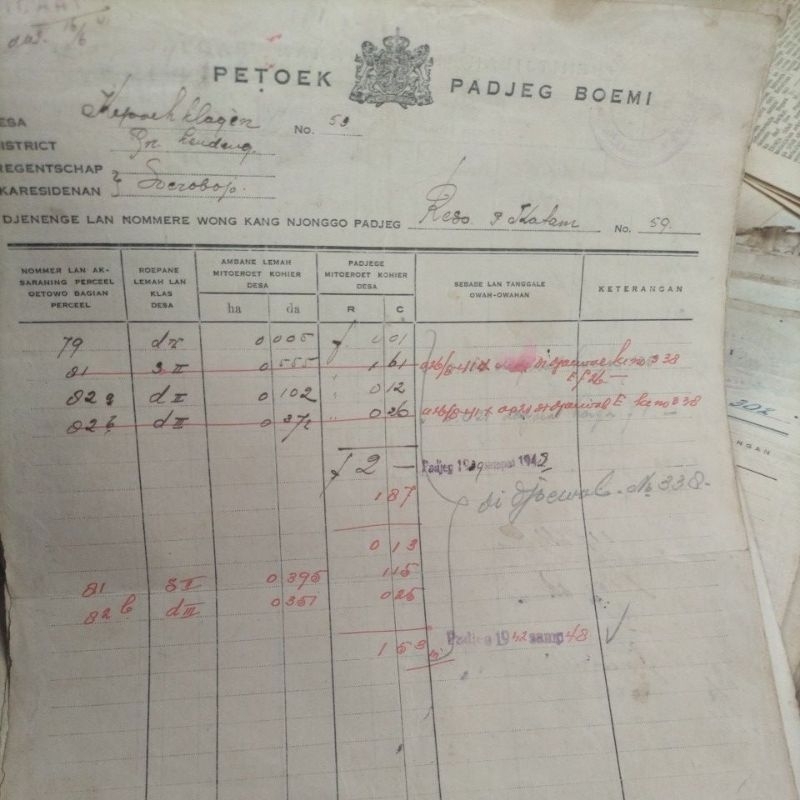 PETOEK PADJEG BOEMI
ESA Kepoehklagen No. 59
ISTRICT Gn. Kendeng
REGENTSCHAP
KARESIDENAN } Soerobojo.
DJENENGE LAN NOMMERE WONG KANG NJONGGO PADJEG Reso P Katam No. 59.
NOMMER LAN AK-
SARANING PERCEEL
OETOWO BAGIAN
PERCEEL
ROEPANE
LEMAH LAN
KLAS
DESA
AMBANE LEMAH
MITOEROET KOHIER
DESA
ha da
PADJEGE
MITOEROET KOHIER
DESA
R C
SEBABE LAN TANGGALE
OWAH-OWAHAN
KETERANGAN
79 d IV 0 005 f 0 01
81 S II 0 555 " 1 61
82a d II 0 102 " 0 12
82b d III 0 371 " 0 26
f 2 — Padjeg 19
1 87 di djoewal No 338.
0 13
81 S I 0 395 1 15
82 b d III 0 351 0 25
1 53 Padjeg 1942 samp 48
302
NGAN